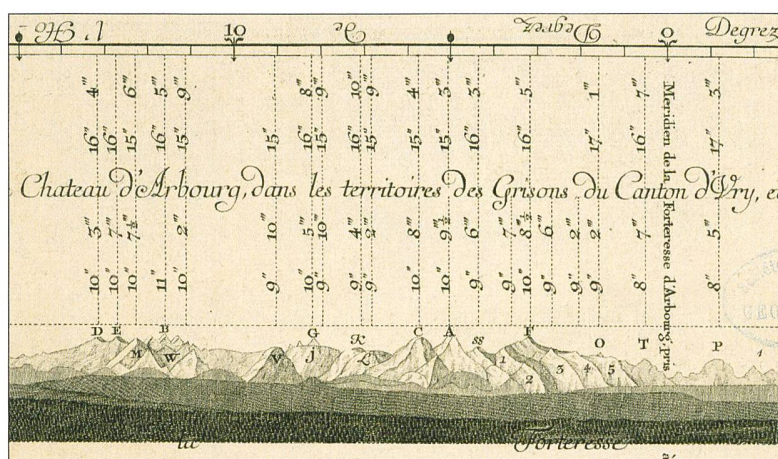 l' Est 10 De Degrez 0 Degrez
4''' 6''' 5''' 9''' 8''' 9''' 10''' 9''' 4''' 3''' 3''' 5''' 1''' 7''' 3'''
16'' 16'' 15'' 16'' 15'' 15'' 16'' 15'' 16'' 15'' 15'' 15'' 16'' 16'' 17'' 16'' 17''
Chateau d'Arbourg, dans les territoires des Grisons du Canton d'Vry, et
3''' 7''' 7½''' 2''' 10''' 5''' 10''' 4''' 2''' 8''' 9½''' 6''' 7''' 8½''' 6''' 2''' 2''' 7''' 5'''
10'' 10'' 10'' 11'' 10'' 9'' 10'' 9'' 9'' 9'' 10'' 10'' 9'' 9'' 10'' 9'' 9'' 9'' 8'' 8''
Meridien de la Forteresse d'Arbourg, pris
D E B G K C A ss F O T P
M W V J L 1 2 3 4 5
la Forteresse